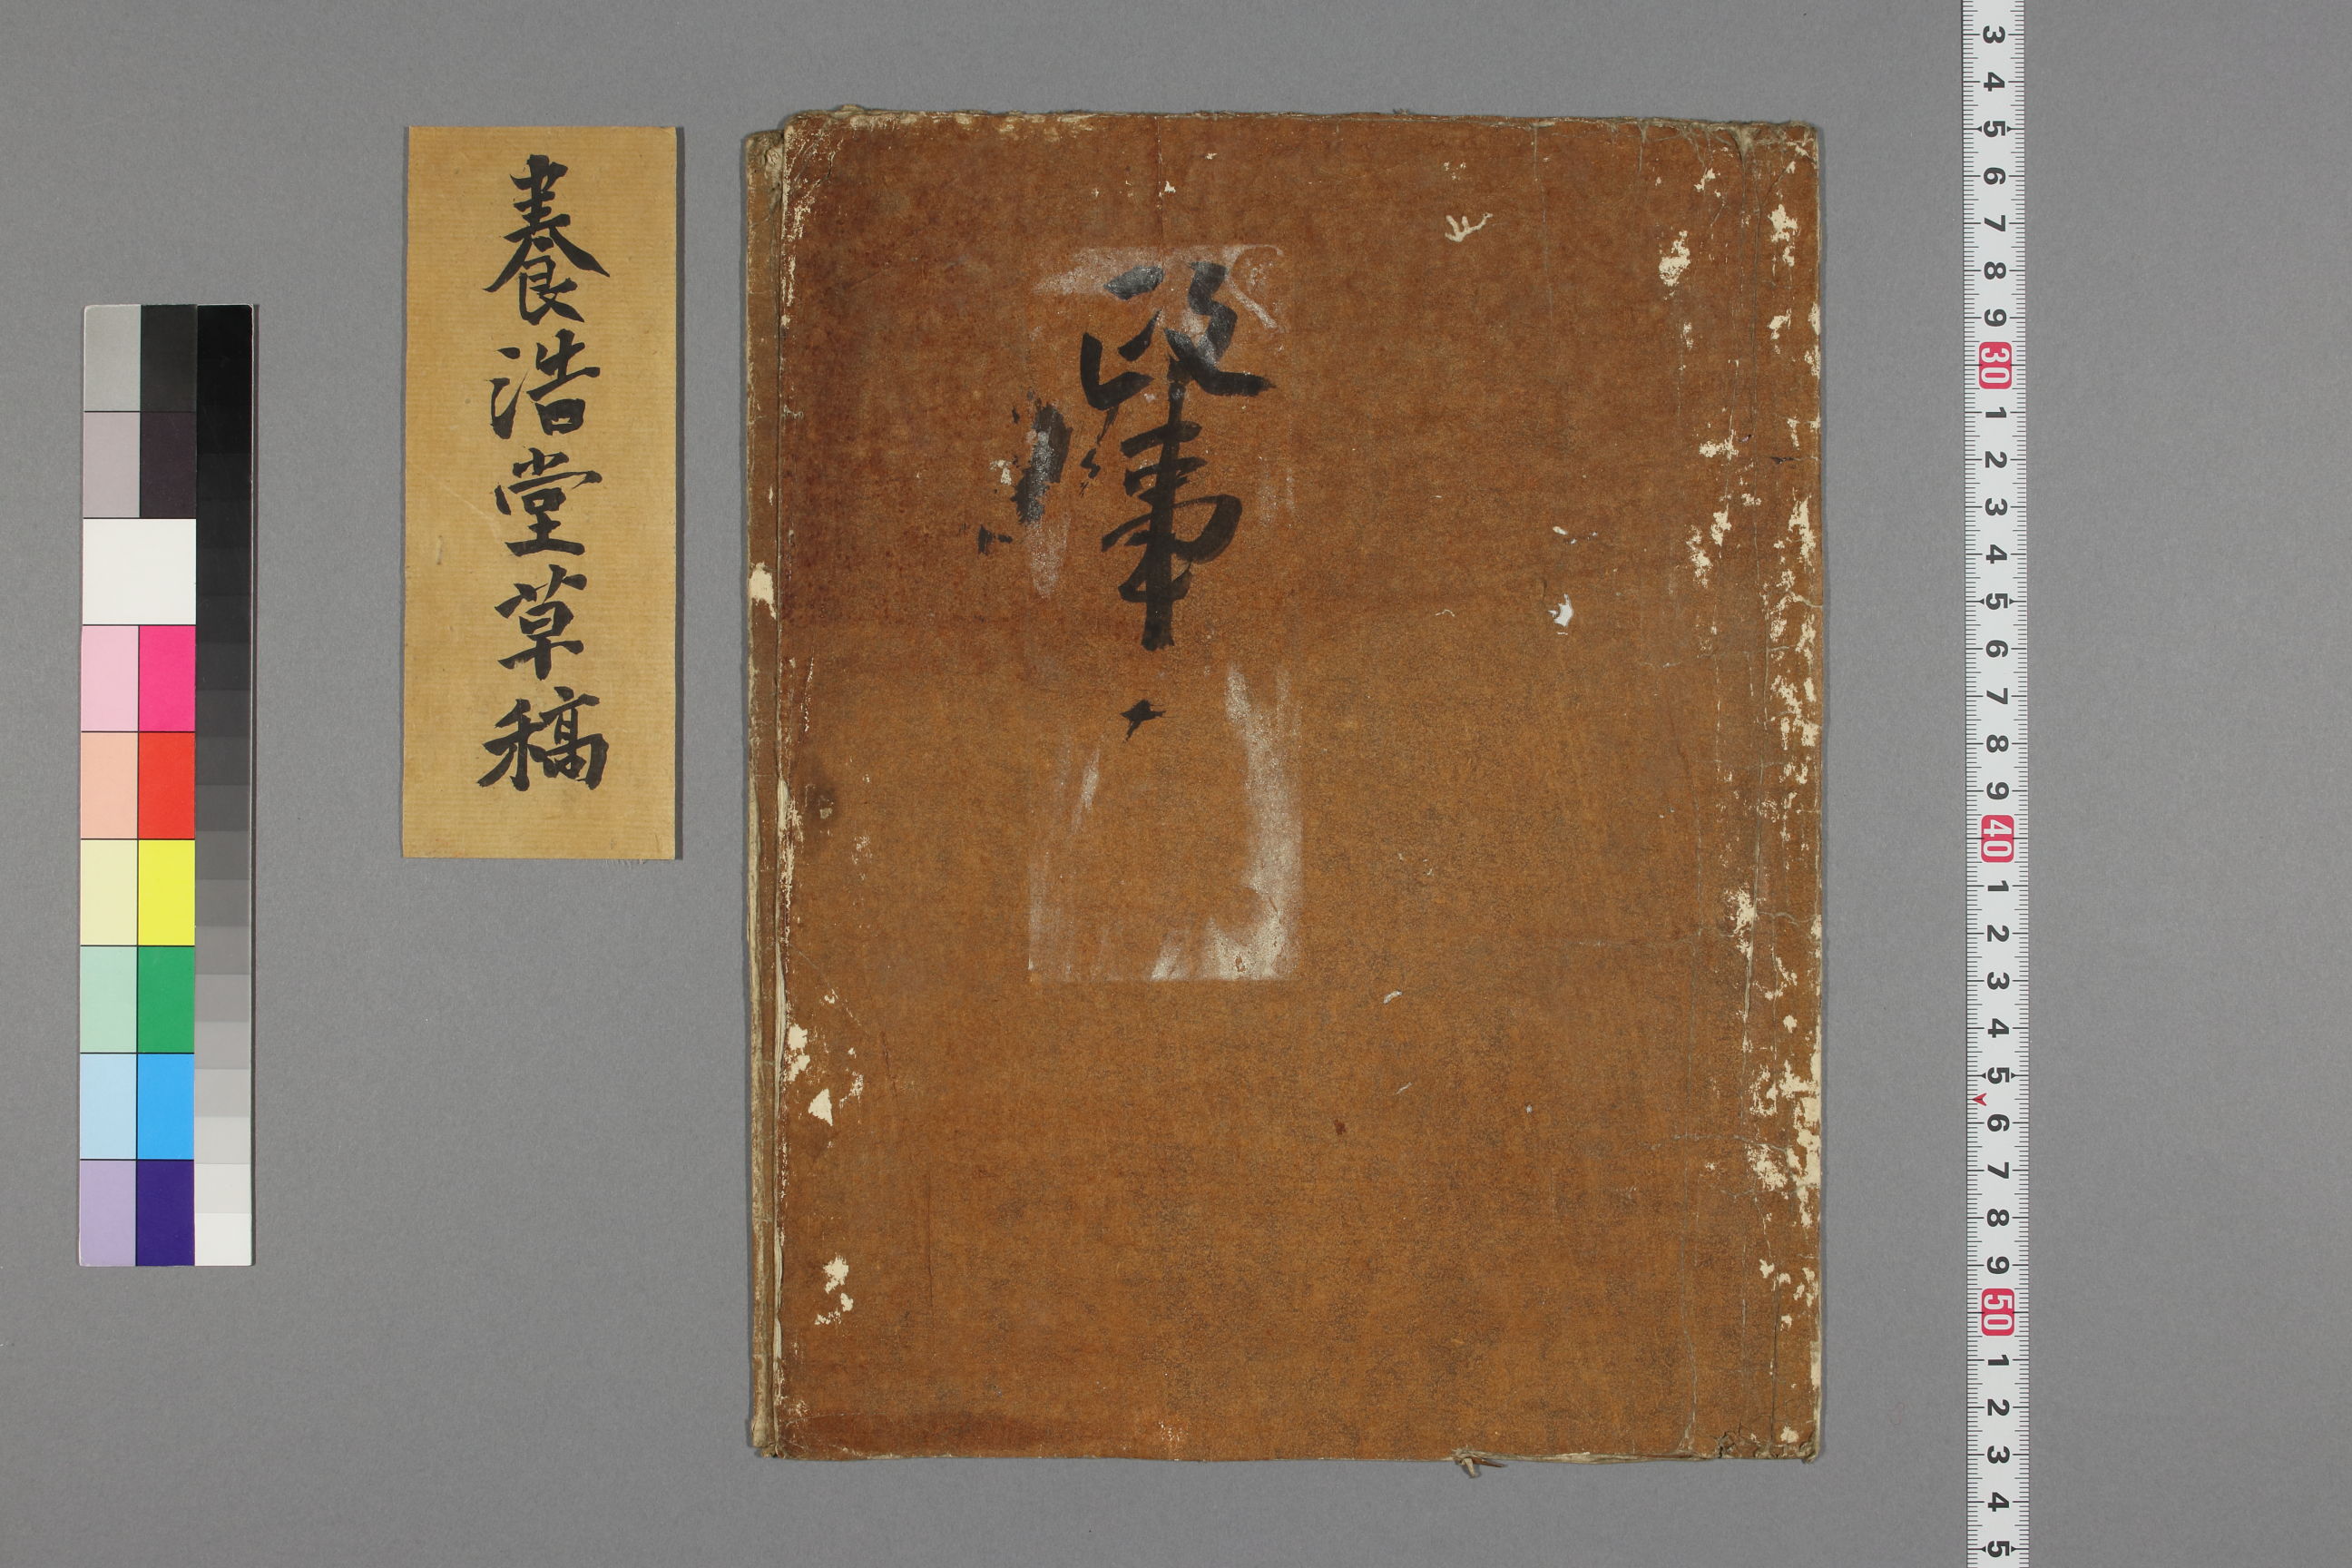 養浩堂草稿
政事
3 4 5 6 7 8 9 30 1 2 3 4 5 6 7 8 9 40 1 2 3 4 5 6 7 8 9 50 1 2 3 4 5